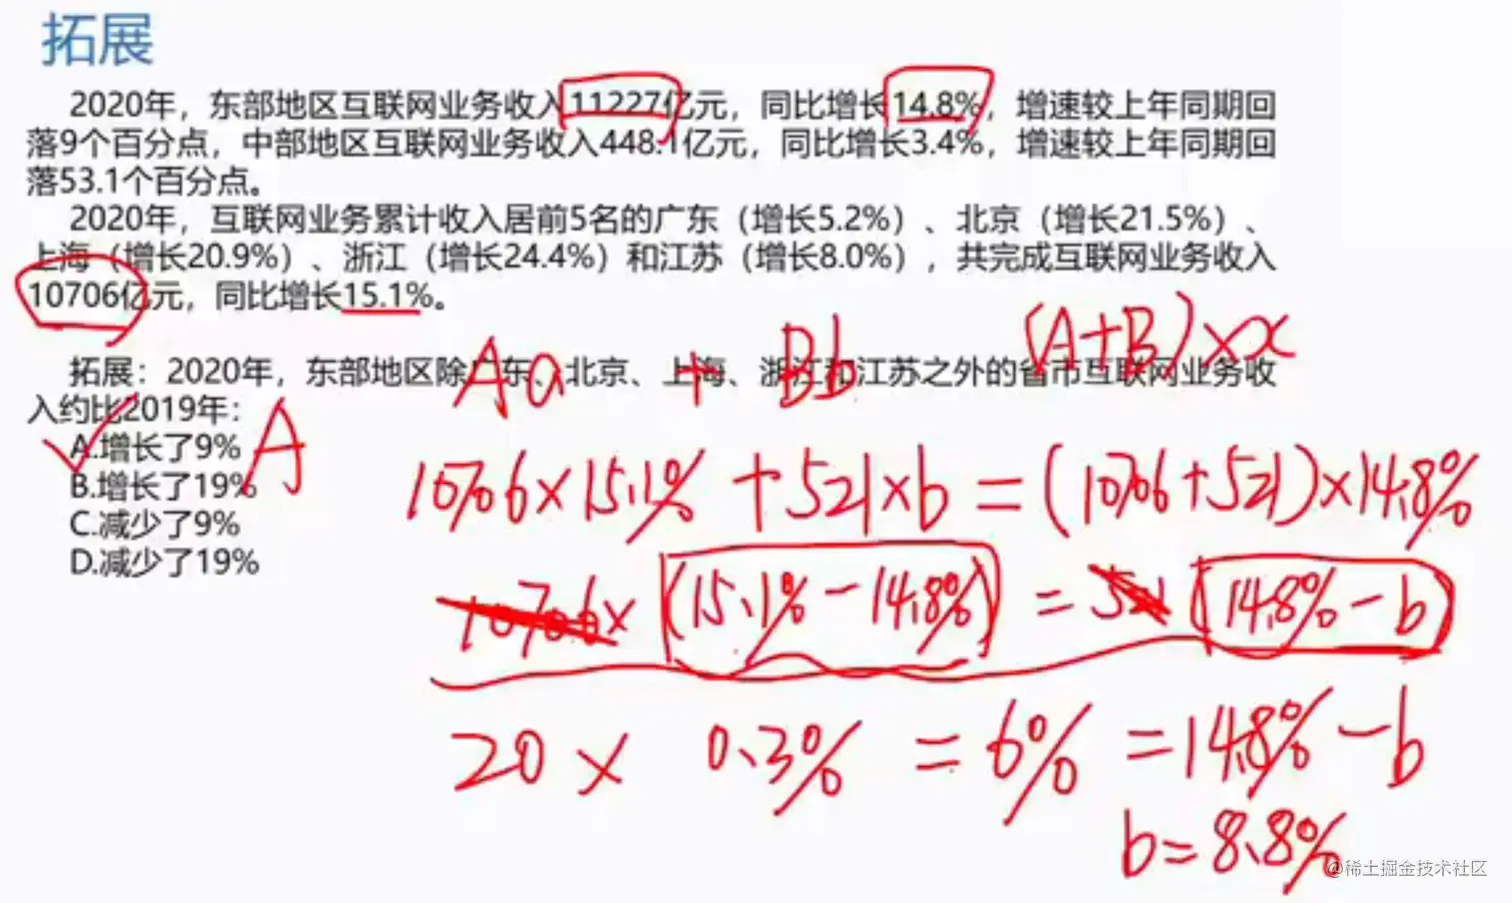 拓展
2020年，东部地区互联网业务收入11227亿元，同比增长14.8%，增速较上年同期回
落9个百分点，中部地区互联网业务收入448.1亿元，同比增长3.4%，增速较上年同期回
落53.1个百分点。
2020年，互联网业务累计收入居前5名的广东（增长5.2%）、北京（增长21.5%）、
上海（增长20.9%）、浙江（增长24.4%）和江苏（增长8.0%），共完成互联网业务收入
10706亿元，同比增长15.1%。
Aa + Bb (A+B)×x
拓展：2020年，东部地区除广东、北京、上海、浙江和江苏之外的省市互联网业务收
入约比2019年：
A.增长了9% A
B.增长了19%
C.减少了9%
D.减少了19%
10706×15.1% + 521×b = (10706+521)×14.8%
10706× (15.1%-14.8%) = 521 (14.8%-b)
20 × 0.3% = 6% = 14.8% - b
b=8.8%
@稀土掘金技术社区